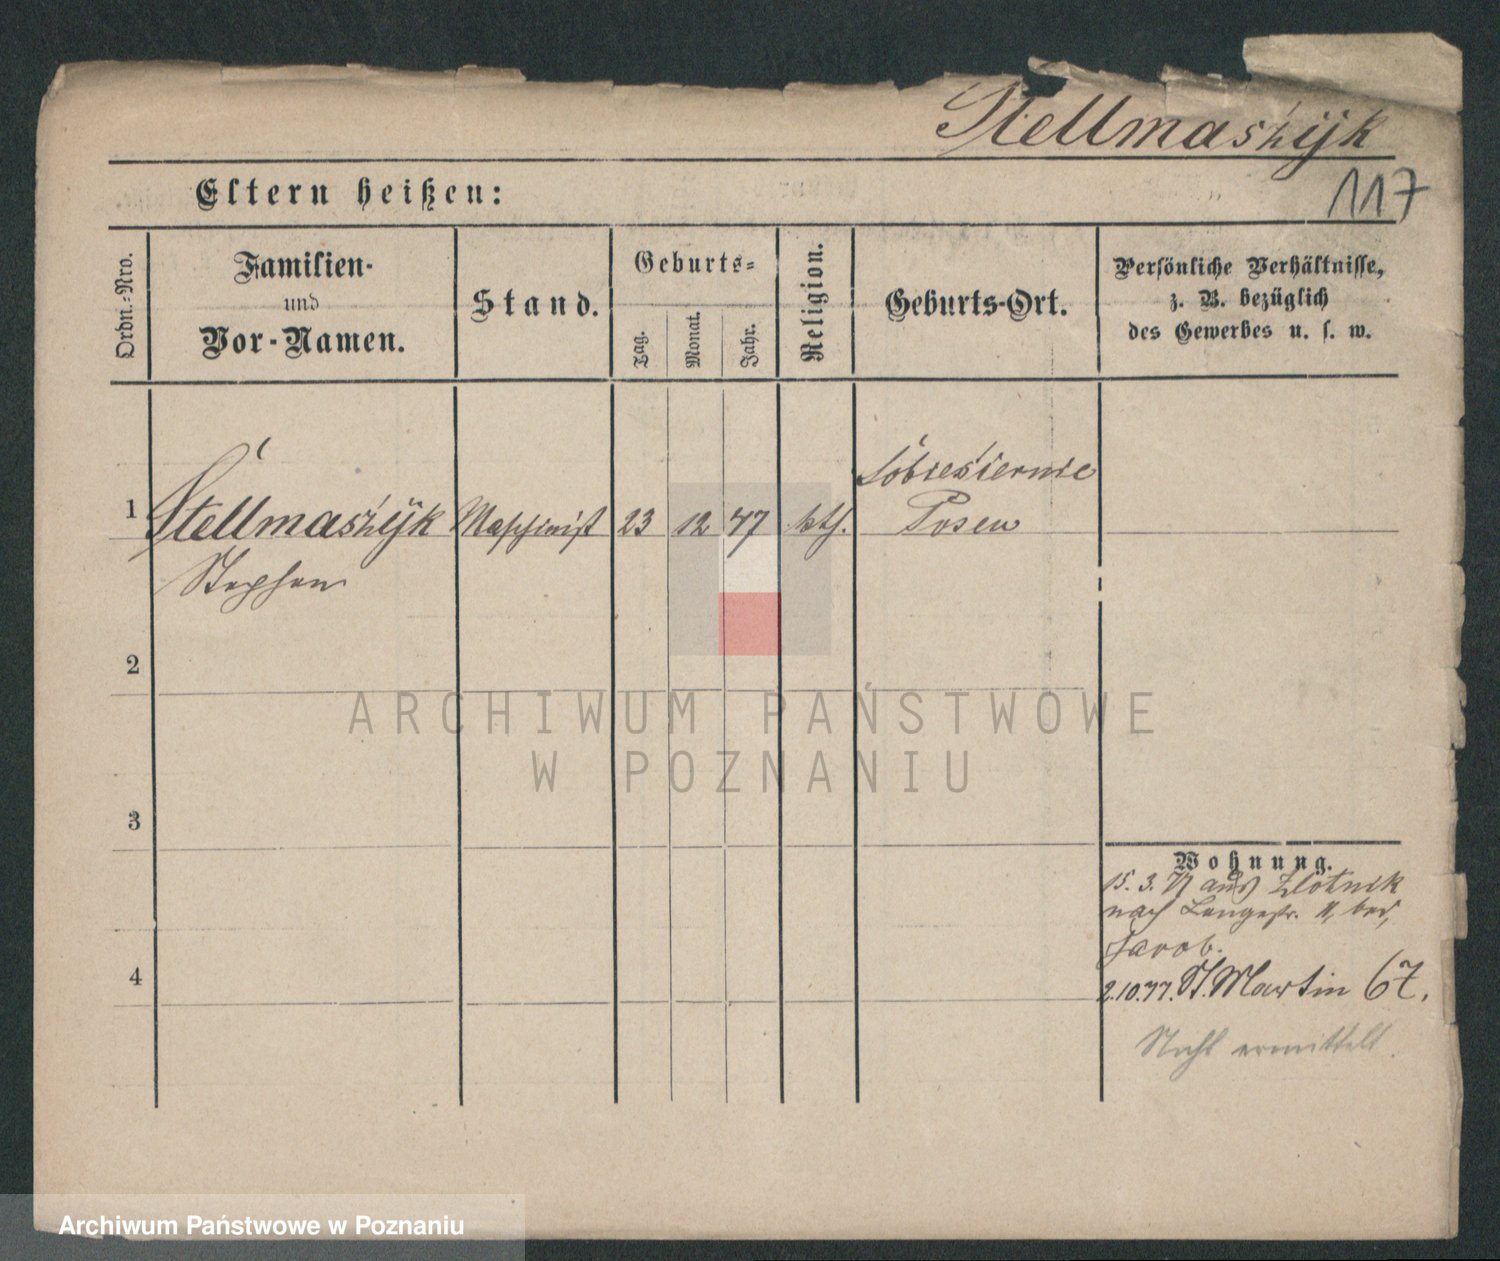 Stellmaszyk
117
Eltern heißen:
Ordn.-Nro.
Familien-
und
Vor-Namen.
Stand.
Geburts-
Tag.
Monat.
Jahr.
Religion.
Geburts-Ort.
Persönliche Verhältnisse,
z. B. bezüglich
des Gewerbes u. s. w.
1
Stellmaszyk
Stephan
Maschinist
23
12
47
kth.
Sobiesiernie
Posen
2
3
4
Wohnung.
15. 3. 77 aus Zlotnik
nach Langestr. 11, bei
Jacob.
2.10.77. St. Martin 67.
Nicht ermittelt.
ARCHIWUM PAŃSTWOWE
W POZNANIU
Archiwum Państwowe w Poznaniu